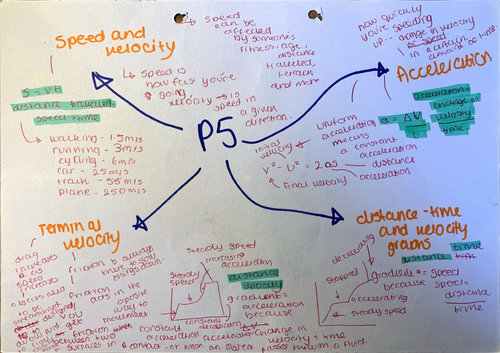 P5
Speed and
velocity
↳ speed
can be
affected
by someone's
fitness, age,
distance
travelled,
terrain
and more
↳ speed is
how fast you're
going,
velocity → is
speed in
a given
direction.
s = vt
distance travelled
speed × time
↳ walking - 1.5m/s
running - 3m/s
cycling - 6m/s
car - 25m/s
train - 55m/s
plane - 250m/s
Acceleration
how quickly
you're speeding
up - change in velocity
or speed
in a certain
amount of time.
acceleration =
change in
velocity
time.
a = ΔV
t
Uniform
acceleration
means
a constant
acceleration
initial
velocity
v² - u² = 2as
→ distance
acceleration
final velocity
Terminal
velocity
drag
increases
as
speed
increases
friction is always
there to slow
things down.
friction
acts in the
opposite
way to
movement
friction
between two
surfaces in contact or when an object passes through a fluid.
distance-time
and velocity
graphs
time
steady speed
increasing
acceleration
steady
speed
constant
acceleration
distance
velocity
gradient =
acceleration
because
acceleration = change in
velocity ÷ time
decelerating
stopped
accelerating
steady speed
gradient = speed
because speed =
distance
time